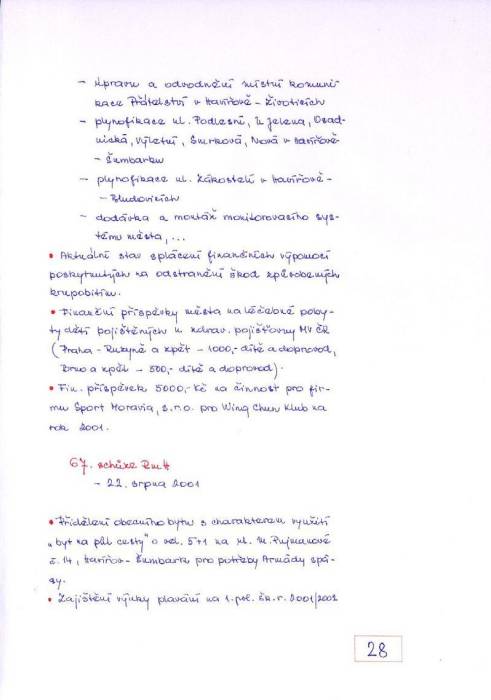 - úpravu a odvodnění místní komuni
kace Přátelství v Havířově - Životicích
- plynofikace ul. Podlesní, U jelena, Osad-
nická, Výletní, Smrková, Nová v Havířově-
- Šumbarku
- plynofikace ul. Zákostelí v Havířově-
- Bludovicích
- dodávka a montáž monitorovacího sys-
tému města, ...
• Aktuální stav splácení finančních výpomocí
poskytnutých na odstranění škod způsobených
krupobitím.
• Finanční příspěvky města na léčebné poby-
ty dětí pojištěných u zdrav. pojišťovny MV ČR
(Praha - Ruzyně a zpět - 1000,- dítě a doprovod,
Brno a zpět - 500,- dítě a doprovod).
• Fin. příspěvek 5000,- Kč na činnost pro fir-
mu Sport Moravia, s.r.o. pro Wing Chun Klub na
rok 2001.
67. schůze RmH
- 22. srpna 2001
• Přidělení obecního bytu s charakterem využití
„byt na půl cesty" o vel. 5+1 na ul. M. Pujmanové
č. 14, Havířov - Šumbark pro potřeby Armády spá-
sy.
• Zajištění výuky plavání na 1. pol. šk. r. 2001/2002
28